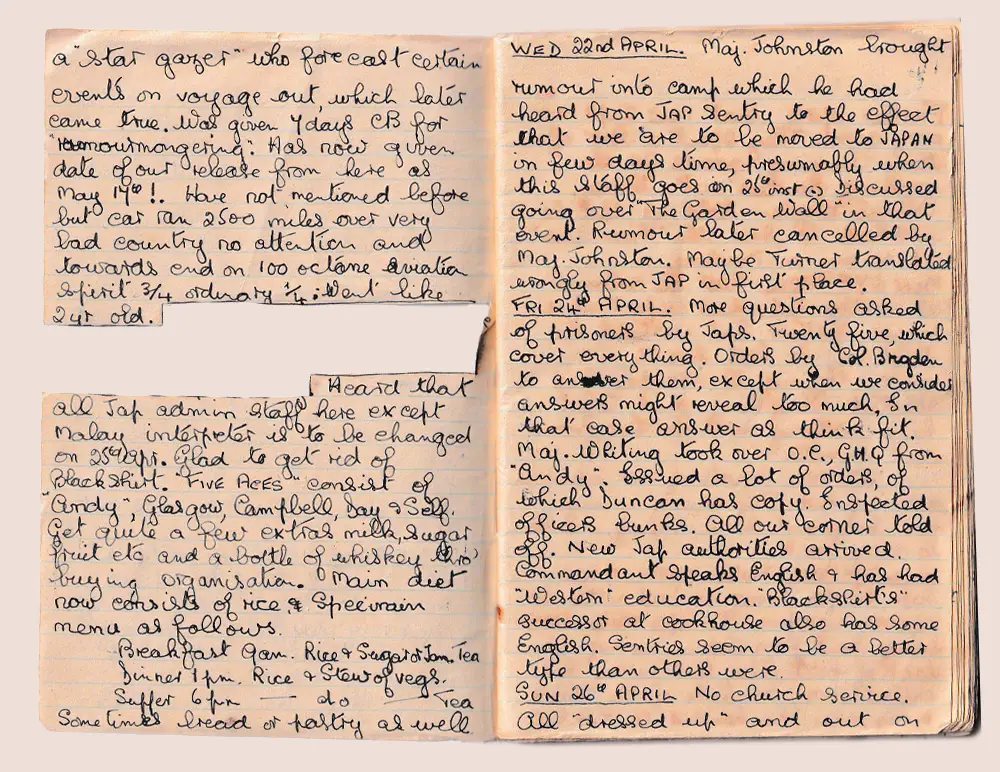 a "star gazer" who forecast certain
events on voyage out, which later
came true. Was given 7 days CB for
"rumourmongering". Has now given
date of our release from here as
May 17th!. Have not mentioned before
but car ran 2500 miles over very
bad country no attention and
towards end on 100 octane aviation
spirit 3/4 ordinary 1/4. Went like
2 yr old.
Heard that
all Jap admin staff here except
Malay interpreter is to be changed
on 25th Apr. Glad to get rid of
Blackshirt. "FIVE ACES" consist of
"Andy", Glasgow, Campbell, Day & Self.
Get quite a few extras milk, sugar
fruit etc and a bottle of whiskey thro'
buying organisation. Main diet
now consists of rice &
menu as follows.
Breakfast 9am. Rice & Sugar or Jam. Tea
Dinner 1pm. Rice & Stew of vegs.
Supper 6pm — do — Tea
Sometimes bread or pastry as well
WED 22nd APRIL. Maj. Johnston brought
rumour into camp which he had
heard from JAP sentry to the effect
that we are to be moved to JAPAN
in few days time, presumably when
this staff goes on 25th inst Discussed
going over "The Garden Wall" in that
event. Rumour later cancelled by
Maj. Johnston. Maybe Turner translated
wrongly from JAP in first place.
FRI 24th APRIL. More questions asked
of prisoners by Japs. Twenty five, which
cover everything. Orders by Col. Brogden
to answer them, except when we consider
answers might reveal too much, In
that case answer as think fit.
Maj. Whiting took over O.C., G.H.Q from
"Andy". Issued a lot of orders, of
which Duncan has copy. Inspected
officers bunks. All our corner told
off. New Jap authorities arrived.
Commandant speaks English & has had
"Western" education. "Blackshirt's"
successor at cookhouse also has some
English. Sentries seem to be a better
type than others were.
SUN 26th APRIL No church service.
All "dressed up" and out on